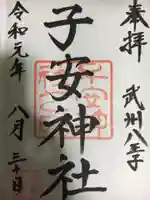 奉拝
武州八王子
子安神社
令和元年
八月三十日